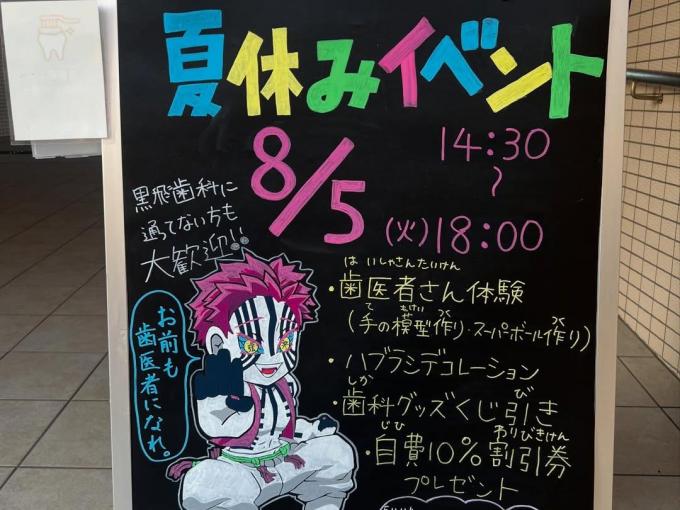 夏休みイベント
8/5
(火)
14:30
~
18:00
黒飛歯科に
通ってない方も
大歓迎!!
お前も
歯医者になれ。
はいしゃさんたいけん
・歯医者さん体験
て もけい つく つく
(手の模型作り・スーパーボール作り)
・ハブラシデコレーション
しか び
・歯科グッズくじ引き
じひ わりびきけん
・自費10%割引券
プレゼント